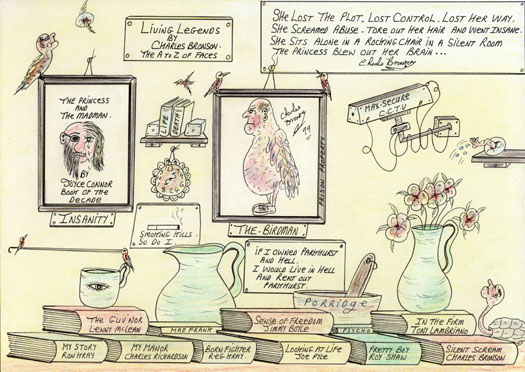 LIVING LEGENDS
BY
CHARLES BRONSON.
THE A TO Z OF FACES
SHE LOST THE PLOT. LOST CONTROL. LOST HER WAY.
SHE SCREAMED ABUSE - TORE OUT HER HAIR AND WENT INSANE.
SHE SITS ALONE IN A ROCKING CHAIR IN A SILENT ROOM
THE PRINCESS BLEW OUT HER BRAIN...
Charles Bronson
THE PRINCESS
AND THE
MADMAN.
BY
JOYCE CONNOR
BOOK OF THE
DECADE
INSANITY.
LIFE
DEATH
SMOKING KILLS.
SO DO I
Charles
Bronson
99
THE-BIRDMAN.
MAX-SECURE
C.C.T.V
IF I OWNED PARKHURST
AND HELL.
I WOULD LIVE IN HELL
AND RENT OUT
PARKHURST
PORRIDGE
THE GUV'NOR
LENNY McLEAN
MAD FRANK
SENSE OF FREEDOM
JIMMY BOYLE
PSYCHO
IN THE FIRM
TONY LAMBRIANO
MY STORY
RON KRAY
MY MANOR
CHARLES RICHARDSON
BORN FIGHTER
REG KRAY.
LOOKING AT LIFE
JOE PYLE
PRETTY BOY
ROY SHAW
SILENT SCREAM
CHARLES BRONSON